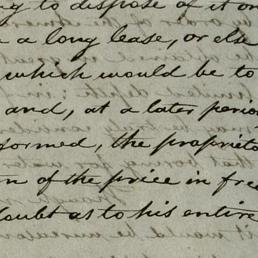 to dispose of it on
a long lease, or else
which would be to
and, at a later period
formed, the propriet
of the price in free
doubt as to his entire